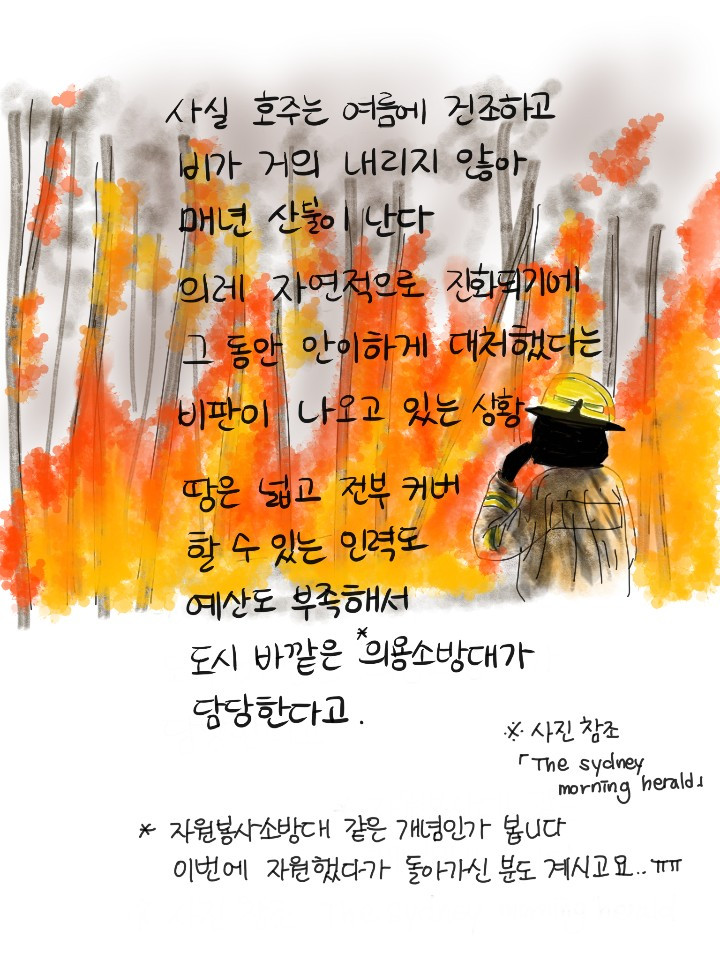 사실 호주는 여름에 건조하고
비가 거의 내리지 않아
매년 산불이 난다
의레 자연적으로 진화되기에
그 동안 안이하게 대처했다는
비판이 나오고 있는 상황
땅은 넓고 전부 커버
할 수 있는 인력도
예산도 부족해서
도시 바깥은 *의용소방대가
담당한다고.
※ 사진 참조
「The sydney
morning herald」
* 자원봉사소방대 같은 개념인가 봅니다
이번에 자원했다가 돌아가신 분도 계시고요..ㅠㅠ